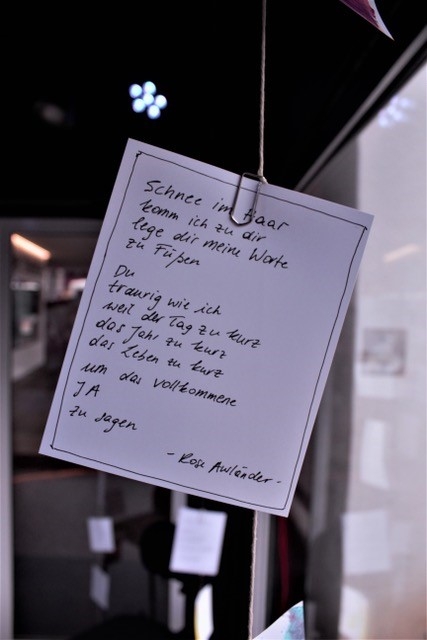 Schnee im Haar
komm ich zu dir
lege dir meine Worte
zu Füßen
Du
traurig wie ich
weil der Tag zu kurz
das Jahr zu kurz
das Leben zu kurz
um das vollkommene
JA
zu sagen
- Rose Ausländer -